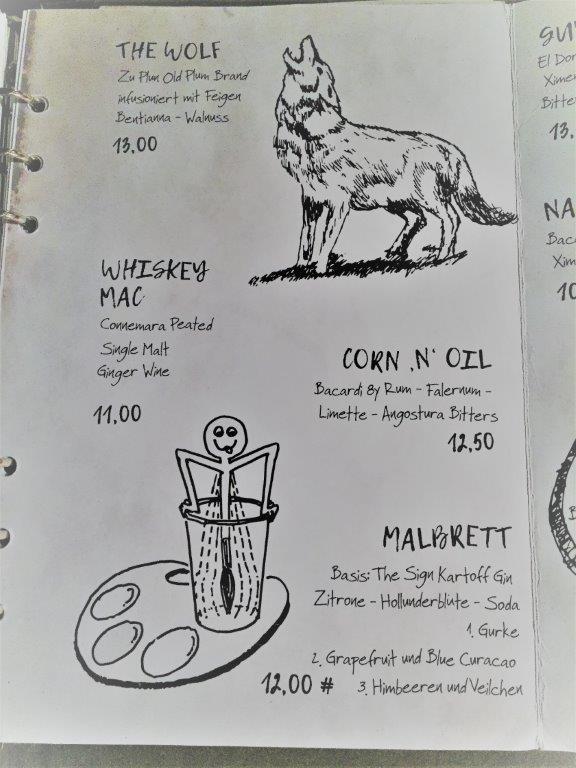 THE WOLF
Zu Plun Old Plum Brand
infusioniert mit Feigen
Bentianna - Walnuss
13,00
WHISKEY
MAC
Connemara Peated
Single Malt
Ginger Wine
11,00
CORN ‚N' OIL
Bacardi 8y Rum - Falernum -
Limette - Angostura Bitters
12,50
MALBRETT
Basis: The Sign Kartoff Gin
Zitrone - Hollunderblüte - Soda
1. Gurke
2. Grapefruit und Blue Curacao
12,00 # 3. Himbeeren und Veilchen
El Dor
Ximen
Bitter
13,
NA
Baca
Xim
10